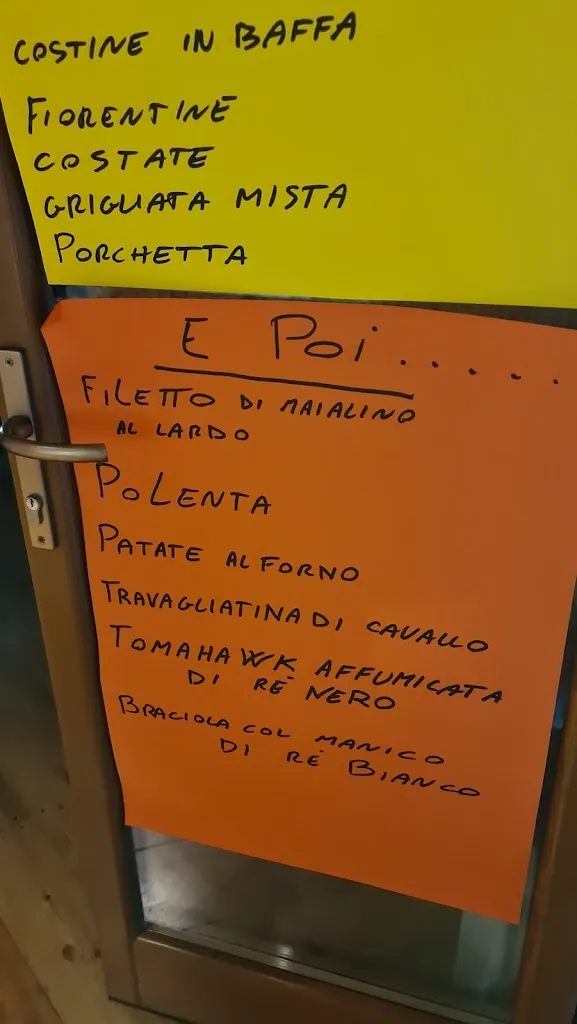 COSTINE IN BAFFA
FIORENTINE
COSTATE
GRIGLIATA MISTA
PORCHETTA
E POI......
FILETTO DI MAIALINO
AL LARDO
POLENTA
PATATE AL FORNO
TRAVAGLIATINA DI CAVALLO
TOMAHAWK AFFUMICATA
DI RE NERO
BRACIOLA COL MANICO
DI RE BIANCO